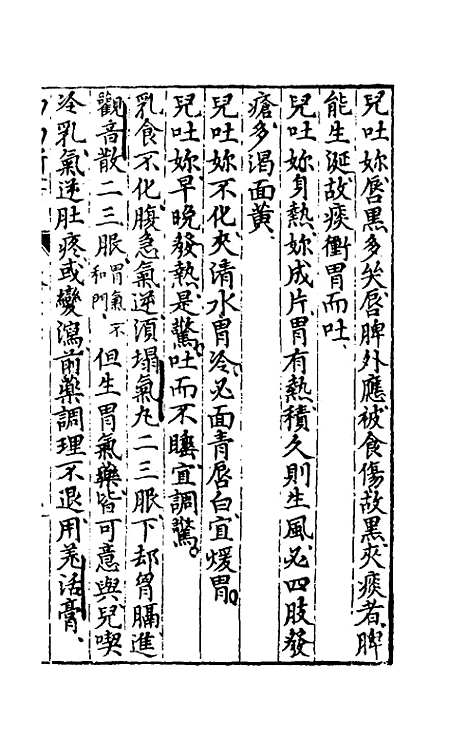 兒吐妳唇黒多矣唇脾外應被食傷故黒夾痰者脾
能生涎故痰衝胃而吐
兒吐妳身熱妳成片胃有熱積久則生風必四肢發
瘡多渴面黄
兒吐妳不化夾清水胃冷必面青唇白宜煖胃
兒吐妳早晩發熱是驚吐而不睡宜調驚
乳食不化腹急氣逆湏塌氣丸二三服下却胷膈進
觀音散二三服胃氣不和門但生胃氣藥皆可意與兒喫
冷乳氣逆肚疼或變瀉前藥調理不退用羗活膏